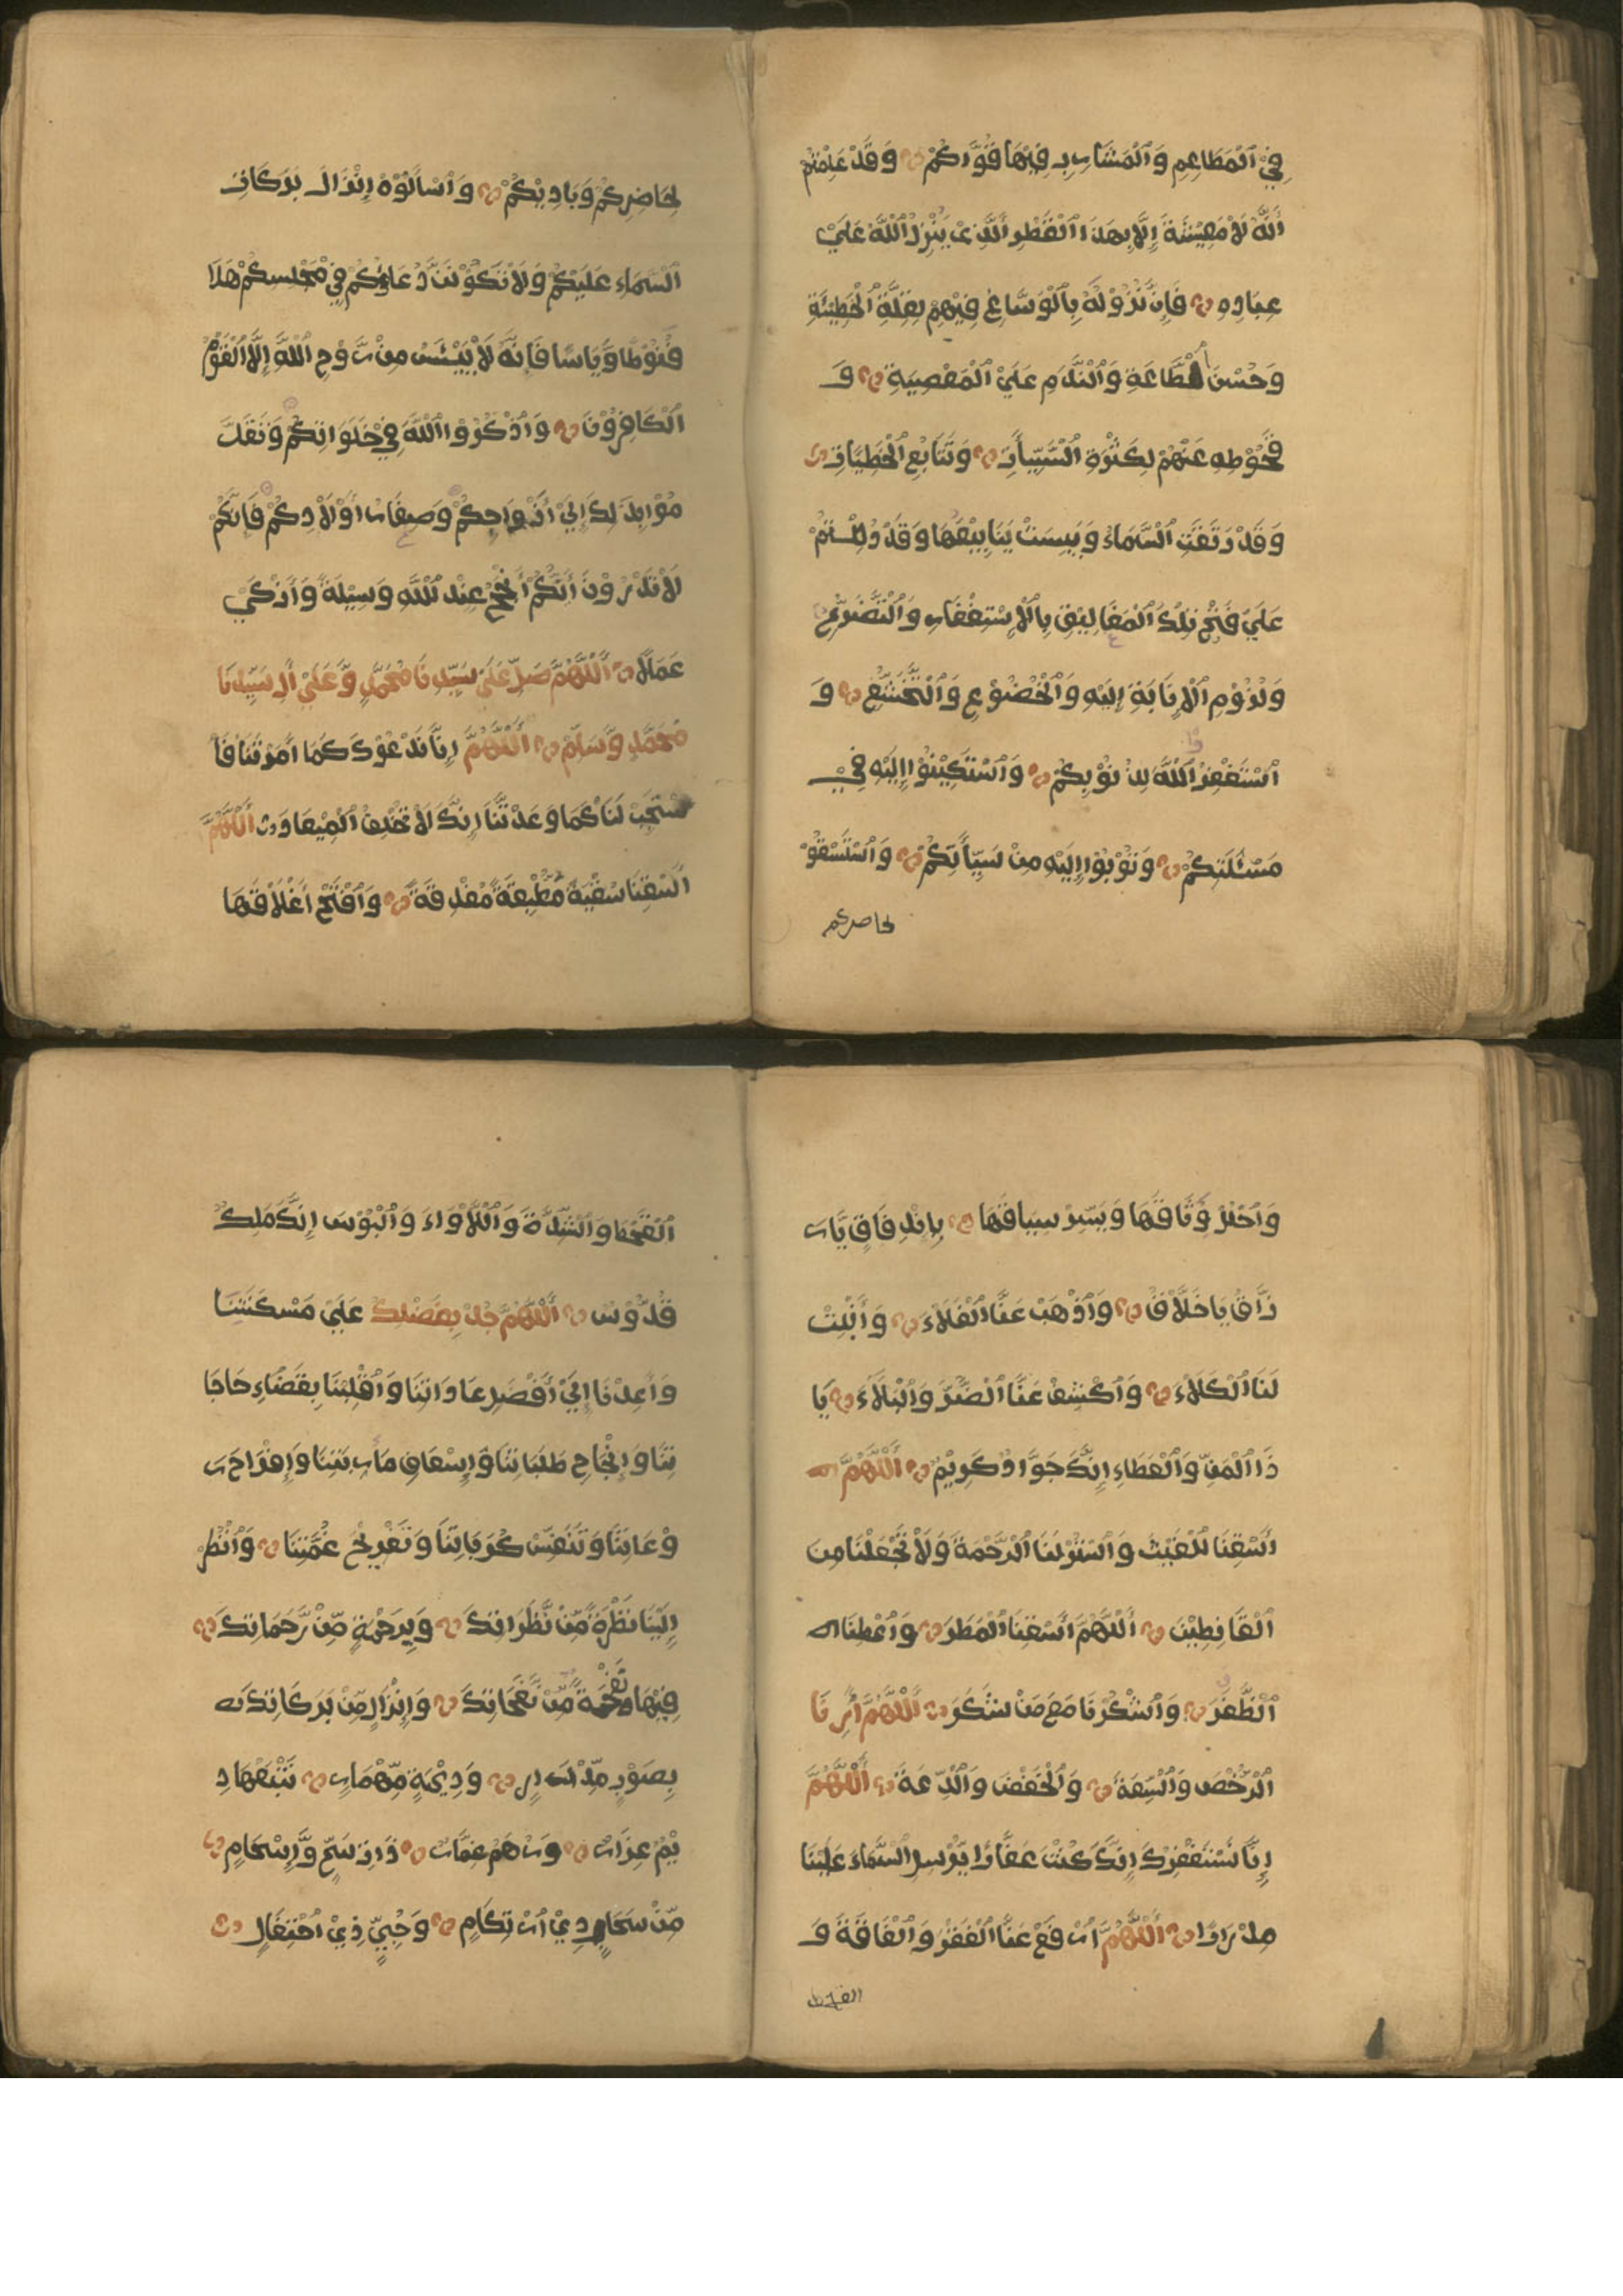 فِيْ الْمَطَاعِمِ وَالْمَشَارِبِ فِيْهَا قُوَّاتُكُمْ وَقَدْ عَلِمْتُمْ
أَنَّهُ لَا مَعِيْشَةَ إِلَّا بِهَذَا الْقَطْرِ الَّذِى يُنْزِلُ اللّٰهُ عَلَيْ
عِبَادِهِ فَإِنَّ نُزُوْلَهُ بِالْوَسَّاعِ فِيْهِمْ بِقِلَّةِ الْخَطِيْئَةِ
وَحُسْنِ الطَّاعَةِ وَالنَّدَمِ عَلَيْ الْمَعْصِيَةِ وَ
قُحُوْطِهِ عَنْهُمْ لِكَثْرَةِ السَّيِّأَتِ وَتَتَابُعِ الْخَطِيَّاتِ
وَقَدْ رَتَقَتِ السَّمَاءُ وَيَبِسَتْ يَنَابِيْعُهَا وَقَدْ دُلِلْتُمْ
عَلَيْ فَتْحِ تِلْكَ الْمَغَالِيْقِ بِالْاِسْتِغْفَارِ وَالتَّضَرُّعِ
وَلُزُوْمِ الْاِنَابَةِ إِلَيْهِ وَالْخُضُوْعِ وَالتَّخَشُّعِ وَ
اسْتَغْفِرُوا اللّٰهَ لِذُنُوْبِكُمْ وَاسْتَكِيْنُوْا إِلَيْهِ فِيْ
مَسْئَلَتِكُمْ وَتُوْبُوْا إِلَيْهِ مِنْ سَيِّأَتِكُمْ وَاسْتَسْقُوْ
لحاضركم
لِحَاضِرِكُمْ وَبَادِيْكُمْ وَاسْأَلُوْهُ إِنْزَالَ بَرَكَاتِ
السَّمَاءِ عَلَيْكُمْ وَلَا تَكُوْنَنَّ دُعَاؤُكُمْ فِيْ مَجْلِسِكُمْ هَذَا
قُنُوْطًا وَّيَاسًا فَإِنَّهُ لَا يَيْئَسُ مِنْ رَّوْحِ اللّٰهِ إِلَّا الْقَوْمُ
الْكَافِرُوْنَ وَاذْكُرُوْا اللّٰهَ فِيْ خَلَوَاتِكُمْ وَتَقَلَّ
مُوْا بِذَلِكَ إِلَيْ أَزْوَاجِكُمْ وَصِغَارِ أَوْلَادِكُمْ فَإِنَّكُمْ
لَا تَدْرُوْنَ أَيُّكُمْ أَنْجَحُ عِنْدَ اللّٰهِ وَسِيْلَةً وَأَزْكَيْ
عَمَلًا أَللّٰهُمَّ صَلِّ عَلَيْ سَيِّدِنَا مُحَمَّدٍ وَّعَلَيْ أَلِ سَيِّدِنَا
مُحَمَّدٍ وَّسَلِّمْ أَللّٰهُمَّ إِنَّا نَدْعُوْكَ كَمَا أَمَرْتَنَا فَا
سْتَجِبْ لَنَا كَمَا وَعَدْتَّنَا إِنَّكَ لَا تُخْلِفُ الْمِيْعَادَ أَللّٰهُمَّ
اسْقِنَا سُقْيَةً مُطْبِقَةً مُغْدِقَةً وَافْتَحْ أَغْلَاقَهَا
وَاحْلُلْ وِثَاقَهَا وَيَسِّرْ سِيَاقَهَا بِانْدِفَاقٍ يَّارَ
زَّاقُ يَاخَلَّاقُ وَاذْهَبْ عَنَّا الْغَلَاءَ وَأَنْبِتْ
لَنَا الْكَلَاءَ وَاكْشِفْ عَنَّا الضُّرَّ وَالْبَلَاءَ يَا
ذَا الْمَنِّ وَالْعَطَاءِ إِنَّكَ جَوَّادٌ كَرِيْمٌ أَللّٰهُمَّ
أَسْقِنَا الْغَيْثَ وَانْشُرْ لَنَا الرَّحْمَةَ وَلَا تَجْعَلْنَا مِنَ
الْقَانِطِيْنَ أَللّٰهُمَّ أَسْقِنَا الْمَطَرَ وَاعْطِنَا
الظَّفَرَ وَاشْكُرْنَا مَعَ مَنْ شَكَرَ أَللّٰهُمَّ أَرِنَا
الرُّخْصَ وَالسَّعَةَ وَالْخَفْضَ وَالدِّعَةَ أَللّٰهُمَّ
إِنَّا نَسْتَغْفِرُكَ إِنَّكَ كُنْتَ غَفَّارًا يُّرْسِلِ السَّمَاءَ عَلَيْنَا
مِدْرَارًا أَللّٰهُمَّ ارْفَعْ عَنَّا الْفَقْرَ وَالْفَاقَةَ وَ
القحط
الْقَحْطَ وَالشِّدَّةَ وَاللَّأْوَاءَ وَالْبُؤْسَ إِنَّكَ مَلِكٌ
قُدُّوْسٌ أَللّٰهُمَّ جُدْ بِفَضْلِكَ عَلَيْ مَسْكَنَتِنَا
وَأَعِدْنَا إِلَيْ أَفْضَلِ عَادَاتِنَا وَاقْلِبْنَا بِقَضَاءِ حَاجَا
تِنَا وَإِنْجَاحِ طَلَبَاتِنَا وَإِسْعَافِ مَأْرَبَتِنَا وَإِفْرَاخِ رَ
وْعَاتِنَا وَتَنَفُّسِ كُرَبَاتِنَا وَتَفْرِيْجِ غُمَّتِنَا وَانْظُرْ
إِلَيْنَا نَظْرَةً مِّنْ نَّظَرَاتِكَ وَبِرَحْمَةٍ مِّنْ رَّحَمَاتِكَ
فِيْهَا نَفْحَةً مِّنْ نَّفَحَاتِكَ وَإِنْزَالٍ مِّنْ بَرَكَاتِكَ
بِصَوْبٍ مِّدْرَارٍ وَدِيْمَةٍ مِّهْمَارٍ تَتْبَعُهَا دِ
يَمٌ غِزَارٌ وَرِهَمٌ غِمَارٌ ذَاتِ سَحٍّ وَّإِسْحَامٍ
مِّنْ سَحَابٍ ذِيْ ارْتِكَامٍ وَحُبِيٍّ ذِيْ احْتِفَالٍ